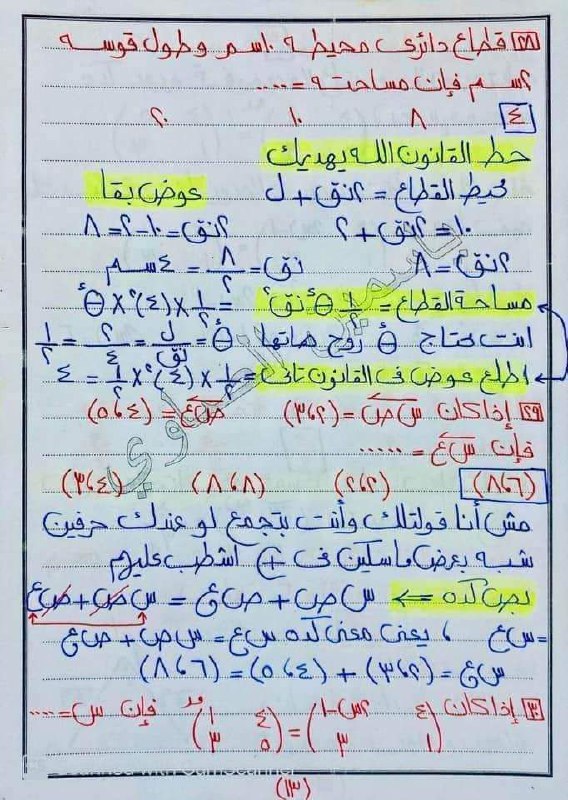 ٢٨ قطاع دائرى محيطه ١٠سم وطول قوسه
٢سم فإن مساحته = ....
٤ ٨ ١٠ ٢٠
حط القانون الله يهديك
محيط القطاع = ٢نق + ل عوض بقا
١٠ = ٢نق + ٢ ٢نق = ١٠ - ٢ = ٨
٢نق = ٨ نق = ٨/٢ = ٤سم
مساحة القطاع = ١/٢ θء نق٢ = ١/٢ × (٤)٢ × θء
انت محتاج θ روح هاتها θء = ل/نق = ٢/٤ = ١/٢
اطلع عوض فى القانون تانى = ١/٢ × (٤)٢ × ١/٢ = ٤
٢٩ إذا كان س ص = (٣،٢) ص ع = (٥،٤)
فإن س ع = .....
(٨،٦) (٢،٢) (٨،٨) (٣،٤)
مش أنا قولتلك وأنت بتجمع لو عندك حرفين
شبه بعض ماسكين فى + اشطب عليهم
بص كده ⇐ س ص + ص ع = س ص + ص ع
= س ع ، يعنى معنى كده س ع = س ص + ص ع
س ع = (٣،٢) + (٥،٤) = (٨،٦)
٣٠ إذا كان (٤ ٢س-١ ١ ٣) = (٤ ١ ٥ ٣)مد فإن س = ....
(١٣)